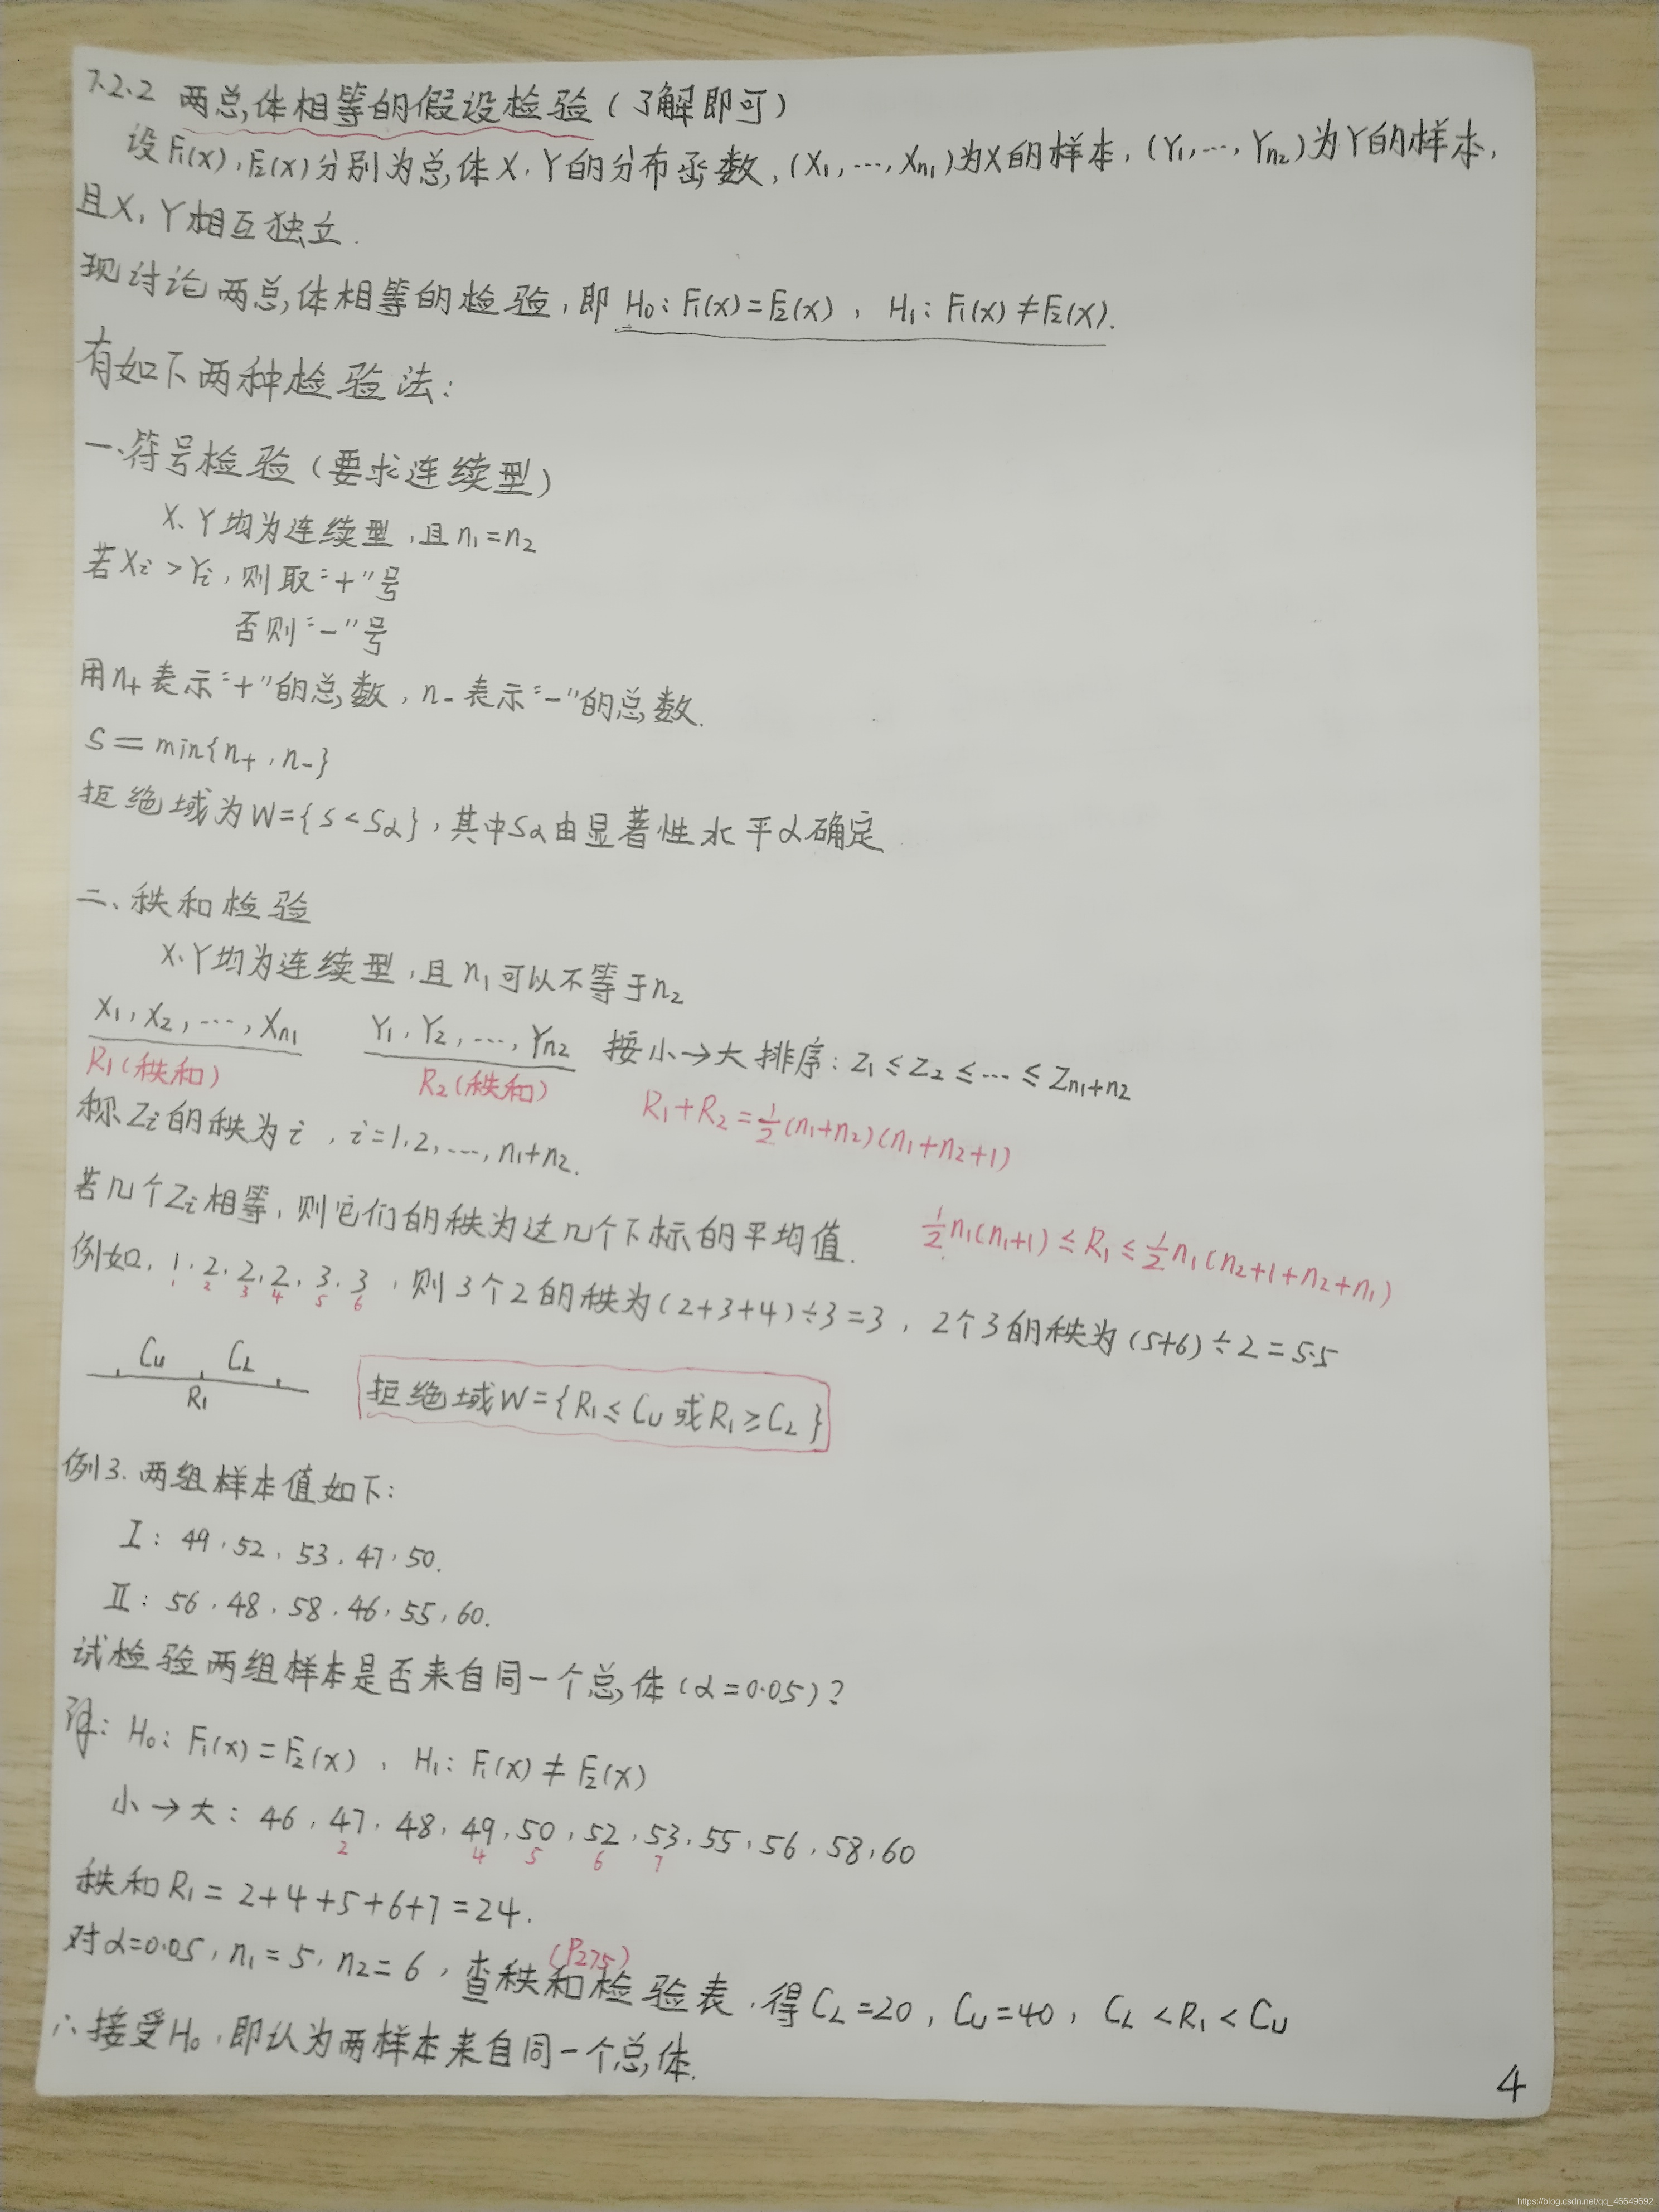 7.2.2 两总体相等的假设检验(了解即可)
设F₁(x),F₂(x)分别为总体X,Y的分布函数,(X₁,…,Xn₁)为X的样本,(Y₁,…,Yn₂)为Y的样本,
且X,Y相互独立.
现讨论两总体相等的检验,即 H₀:F₁(x)=F₂(x), H₁:F₁(x)≠F₂(x).
有如下两种检验法:
一、符号检验(要求连续型)
X、Y均为连续型,且n₁=n₂
若Xi>Yi,则取“+”号
否则“-”号
用n₊表示“+”的总数,n₋表示“-”的总数.
S=min{n₊,n₋}
拒绝域为W={S<Sα},其中Sα由显著性水平α确定
二、秩和检验
X、Y均为连续型,且n₁可以不等于n₂
X₁,X₂,…,Xn₁ Y₁,Y₂,…,Yn₂ 按小→大排序:Z₁≤Z₂≤…≤Zn₁+n₂
R₁(秩和) R₂(秩和) R₁+R₂=½(n₁+n₂)(n₁+n₂+1)
称Zi的秩为i,i=1,2,…,n₁+n₂.
若几个Zi相等,则它们的秩为这几个下标的平均值. ½n₁(n₁+1)≤R₁≤½n₁(n₂+1+n₂+n₁)
例如,1,2,2,2,3,3,则3个2的秩为(2+3+4)÷3=3,2个3的秩为(5+6)÷2=5.5
1 2 3 4 5 6
CU CL
R₁
拒绝域W={R₁≤CU或R₁≥CL}
例3.两组样本值如下:
Ⅰ:49,52,53,47,50.
Ⅱ:56,48,58,46,55,60.
试检验两组样本是否来自同一个总体(α=0.05)?
解:H₀:F₁(x)=F₂(x),H₁:F₁(x)≠F₂(x)
小→大:46,47,48,49,50,52,53,55,56,58,60
2 4 5 6 7
秩和R₁=2+4+5+6+7=24.
(P275)
对α=0.05,n₁=5,n₂=6,查秩和检验表,得CL=20,CU=40,CL<R₁<CU
∴接受H₀,即认为两样本来自同一个总体.
4
https://blog.csdn.net/qq_46649692